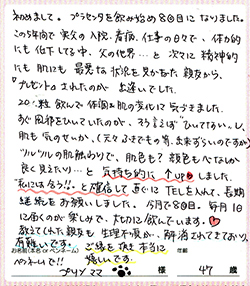 初めまして。プラセンタを飲み始め8回目になりました。
この5年間で実父の入院.看病.仕事の日々で、体力的
にも低下している中、父の他界…と次々に精神的
にも肌にも最悪な状況を見かねた親友から、
『プレゼント』されたのが出逢いでした。
20粒飲んで体調と肌の変化に気づきました。
すぐ風邪をひいていたのが、そう言えば"ひいてない"し、
肌も気のせいか、(元々ふきでもの等.出来ずらいのですが)
"ツルツル"の肌触りで、肌色も?顔色もべなんか
良く見えたり…と気持ち的にもupしました
私には合う!!と確信して直ぐにTELを入れて、長期
継続をお願いしました。今月で8回目。毎月1日
に届くのが楽しみで、大切に飲んでいます。
教えてくれた親友も生理不順が、解消されてきており、
有難いです。ご縁を頂き本当に
嬉しいです。
お名前(本名 or ペンネーム)
年齢
ペンネームで!!
プリン ママ 様 47 歳